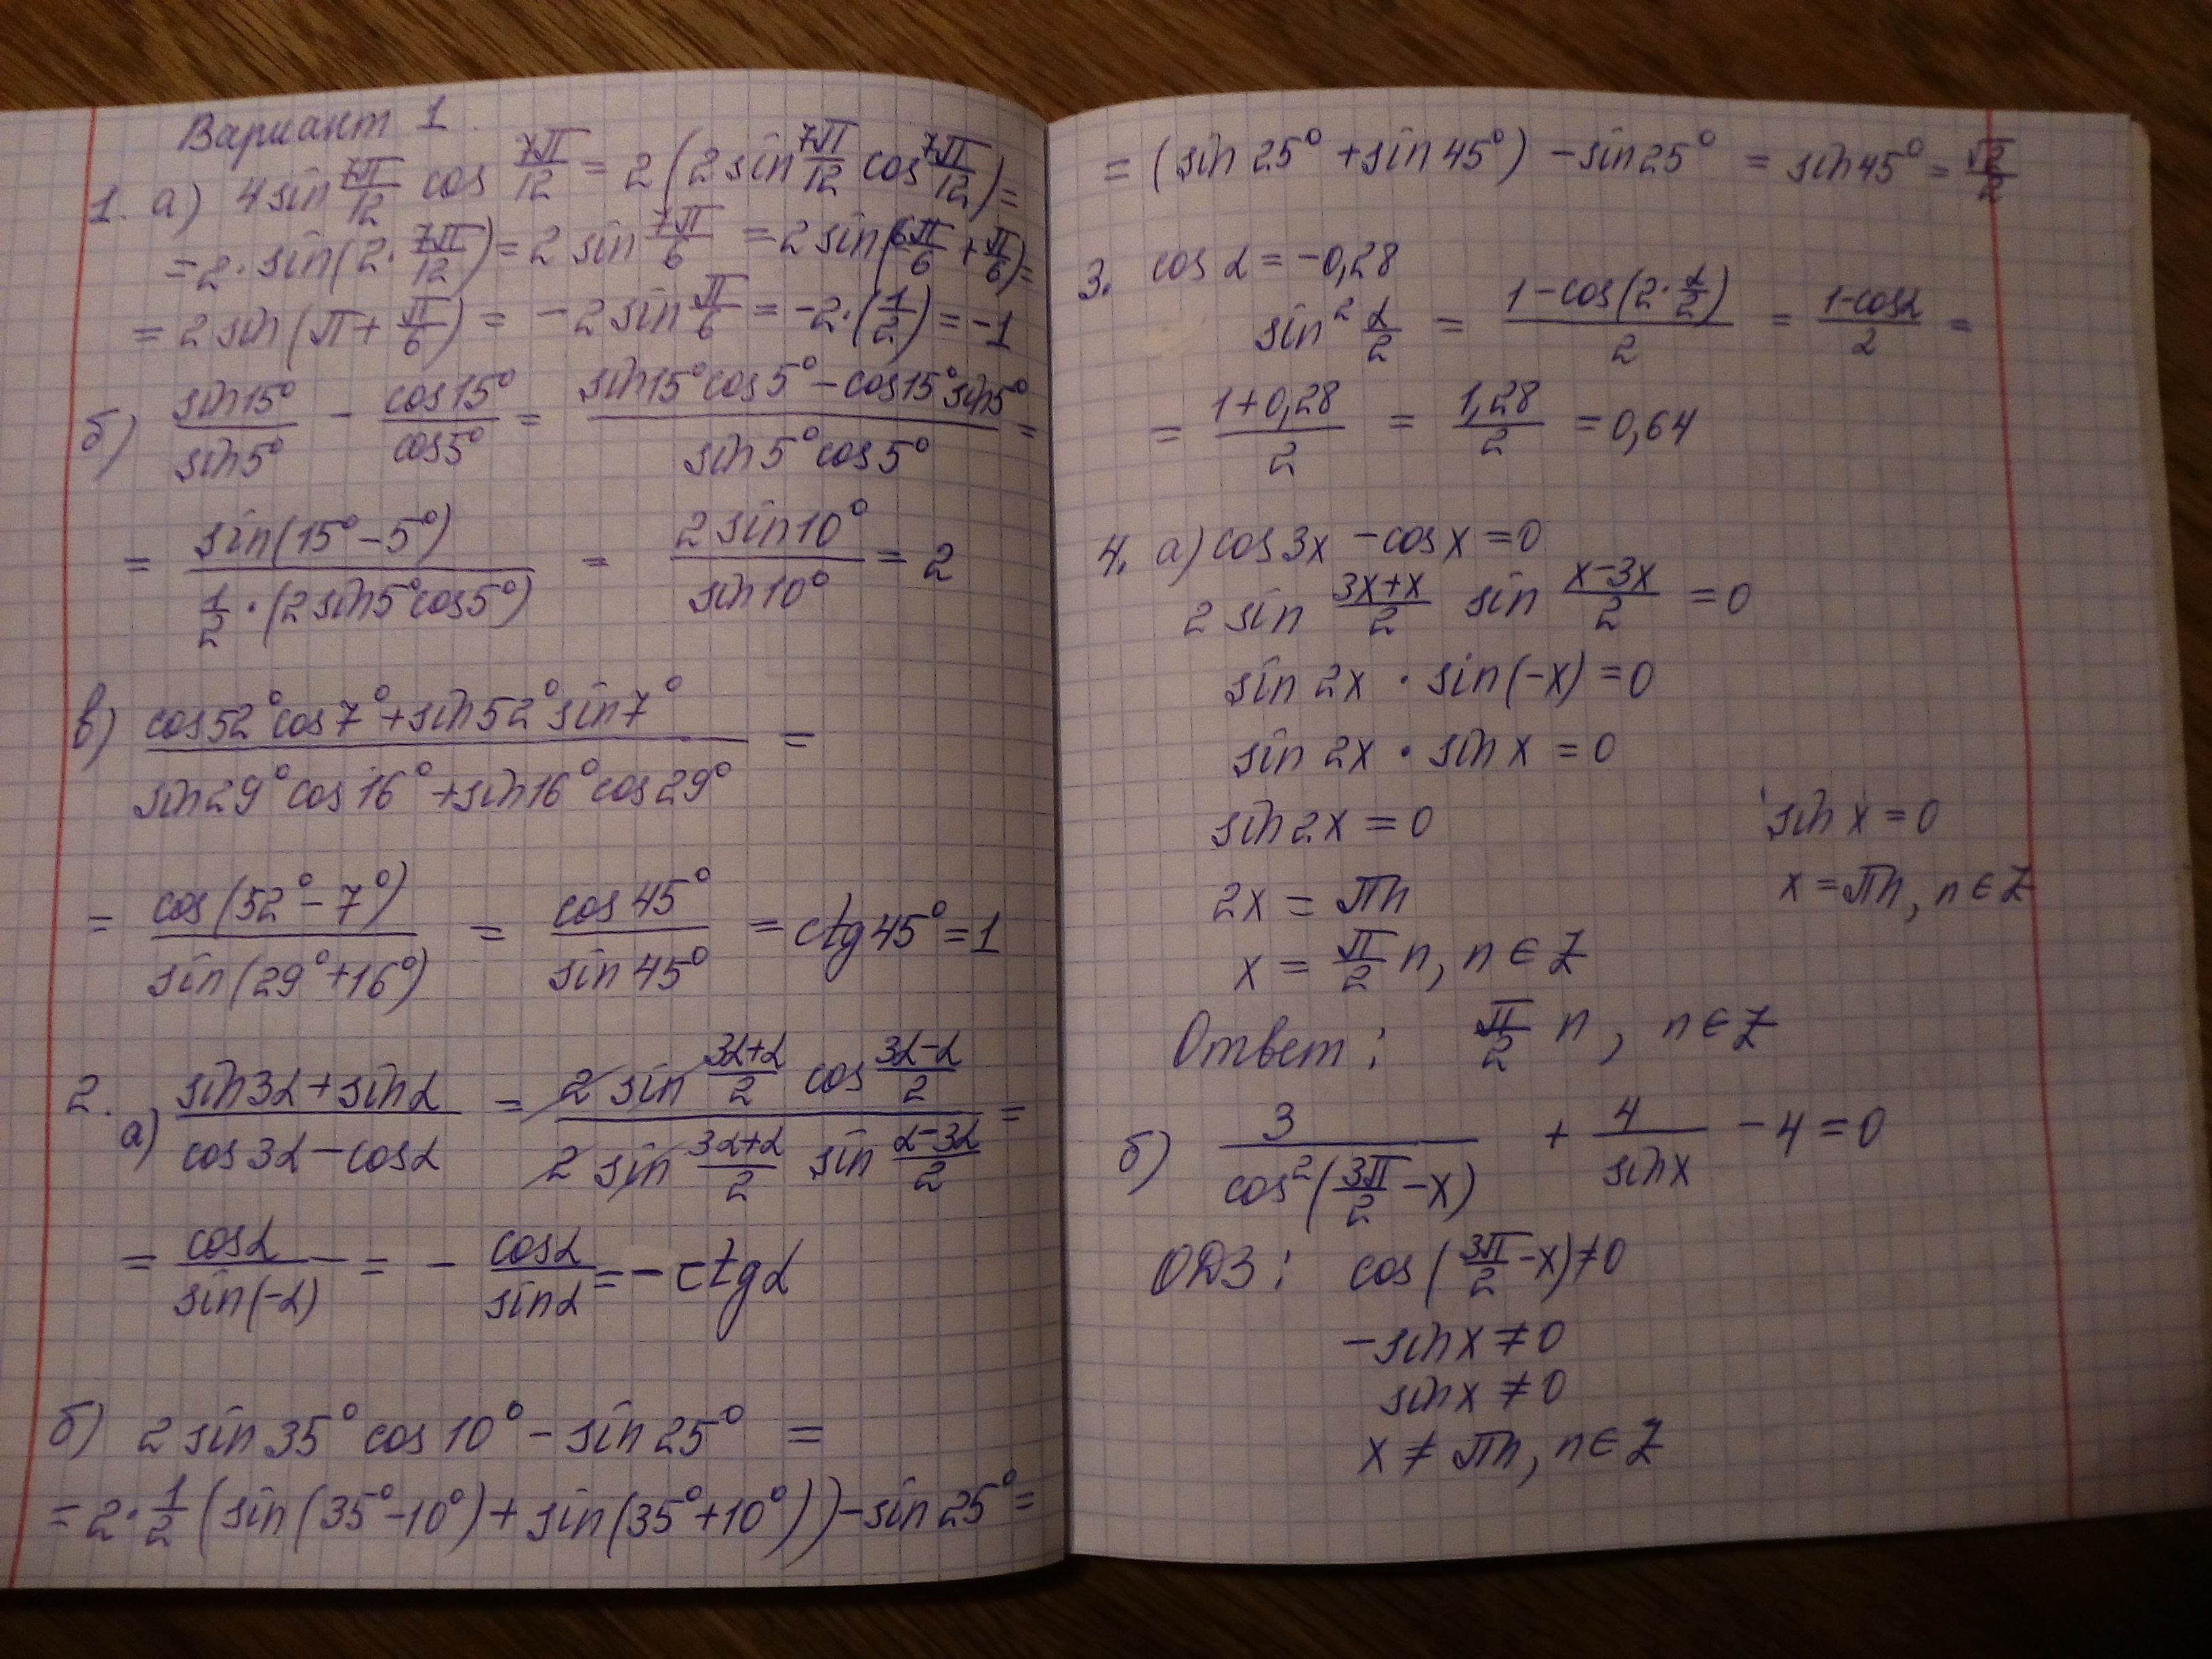 Вариант 1.
1. а) 4 sin 7π/12 cos 7π/12 = 2 (2 sin 7π/12 cos 7π/12) =
= 2 · sin(2 · 7π/12) = 2 sin 7π/6 = 2 sin(6π/6 + π/6) =
= 2 sin(π + π/6) = - 2 sin π/6 = -2 · (1/2) = -1
б) sin15°/sin5° - cos15°/cos5° = (sin15°cos5° - cos15°sin5°)/(sin5°cos5°) =
= sin(15° - 5°)/(1/2 · (2 sin5°cos5°)) = 2 sin10°/sin10° = 2
в) (cos52°cos7° + sin52°sin7°)/(sin29°cos16° + sin16°cos29°) =
= cos(52° - 7°)/sin(29° + 16°) = cos45°/sin45° = ctg45° = 1
2. а) (sin3α + sinα)/(cos3α - cosα) = (2 sin (3α+α)/2 cos (3α-α)/2)/(2 sin (3α+α)/2 sin (α-3α)/2) =
= cosα/sin(-α) = - cosα/sinα = - ctgα
б) 2 sin35° cos10° - sin25° =
= 2 · 1/2 (sin(35° - 10°) + sin(35° + 10°)) - sin25° =
= (sin25° + sin45°) - sin25° = sin45° = √2/2
3. cosα = -0,28
sin² α/2 = (1 - cos(2 · α/2))/2 = (1 - cosα)/2 =
= (1 + 0,28)/2 = 1,28/2 = 0,64
4. а) cos3x - cosx = 0
2 sin (3x+x)/2 sin (x-3x)/2 = 0
sin 2x · sin(-x) = 0
sin 2x · sin x = 0
sin 2x = 0 sin x = 0
2x = πn x = πn, n ∈ Z
x = π/2 n, n ∈ Z
Ответ: π/2 n, n ∈ Z
б) 3/cos²(3π/2 - x) + 4/sinx - 4 = 0
ОДЗ: cos(3π/2 - x) ≠ 0
- sinx ≠ 0
sinx ≠ 0
x ≠ πn, n ∈ Z